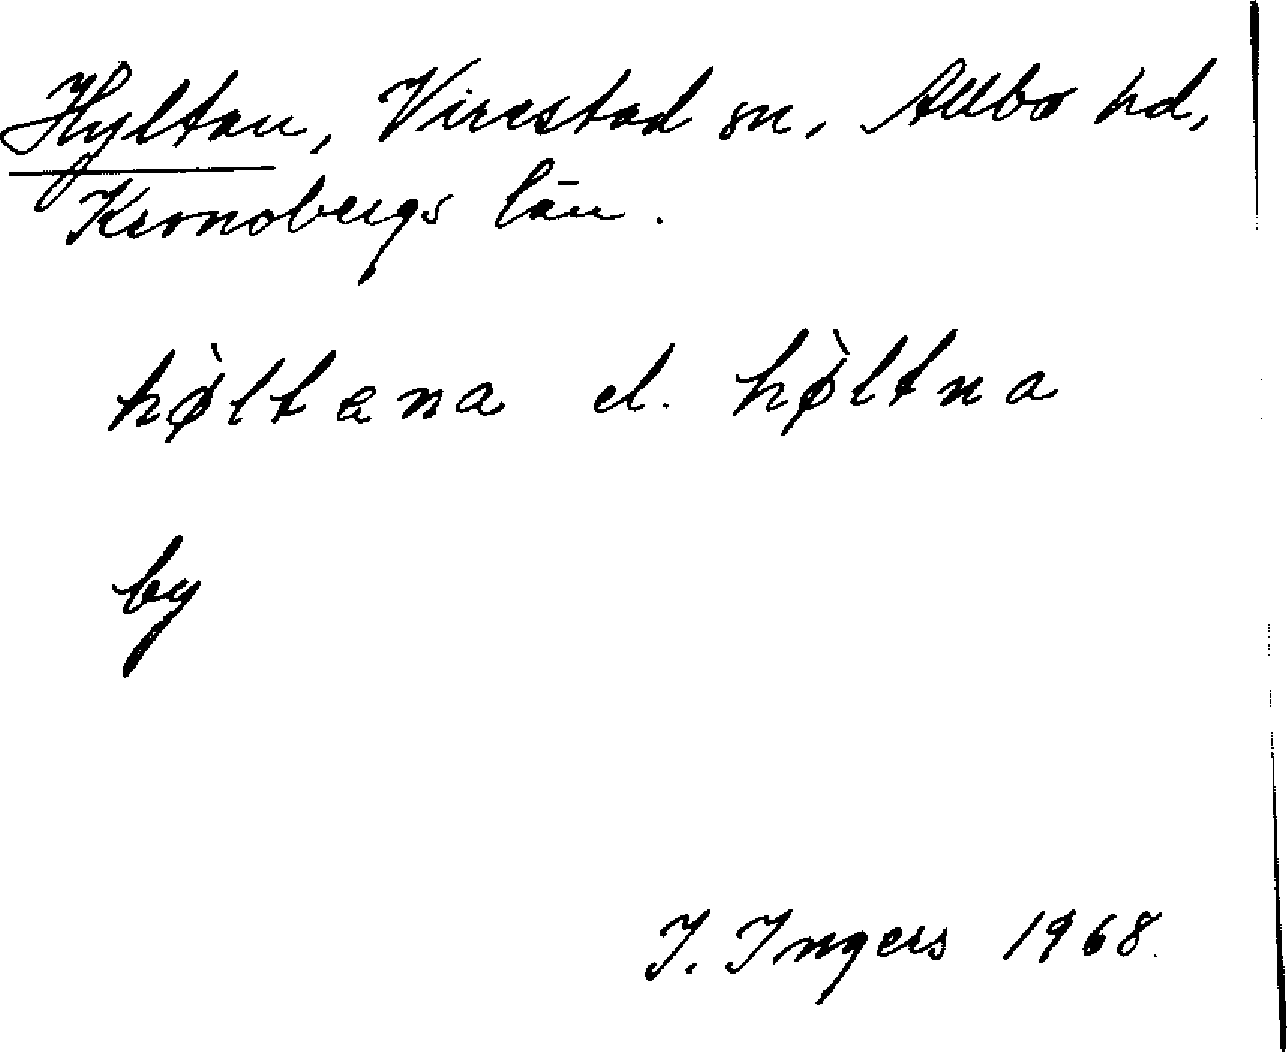 Hyltan, Virestad sn, Allbo hd,
Kronobergs län.
hø̀ltəna el. hø̀ltna
by
I. Ingers 1968.